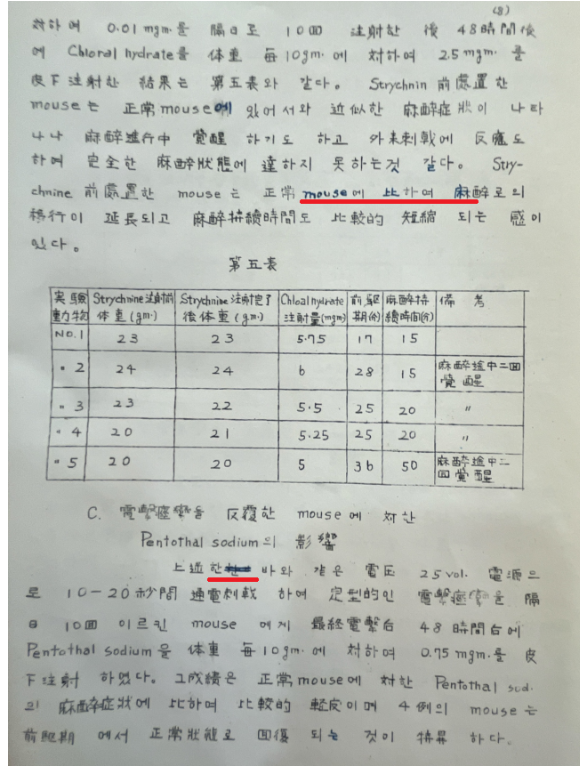 (8)
対하여 0.01 mgm.을 隔日로 10回 注射한 後 48時間後
에 Chloral hydrate를 体重 每10gm.에 対하여 2.5 mgm.을
皮下注射한 結果는 第五表와 같다. Strychnin 前處置한
mouse는 正常mouse에 있어서와 近似한 麻醉症狀이 나타
나나 麻醉進行中 覺醒 하기도 하고 外来刺戟에 反應도
하여 完全한 麻醉狀態에 達하지 못하는것 같다. Stry-
chnine 前處置한 mouse는 正常 mouse에 比하여 麻醉로의
移行이 延長되고 麻醉持續時間도 比較的 短縮 되는 感이
있다.
第五表
実驗動物 Strychnine 注射前体重(gm.) Strychnine 注射完了後体重(gm.) Chloal hydrate 注射量(mgm) 前駆期(分) 麻醉持続時間(分) 備考
No.1 23 23 5.75 17 15
〃 2 24 24 6 28 15 麻醉途中二回覺醒
〃 3 23 22 5.5 25 20 〃
〃 4 20 21 5.25 25 20 〃
〃 5 20 20 5 36 50 麻醉途中二回覺醒
C. 電擊痙攣을 反覆한 mouse에 対한
Pentothal sodium의 影響
上述한 바와 같은 電圧 25 vol. 電源으
로 10-20秒間 通電刺戟 하여 定型的인 電擊痙攣을 隔
日 10回 이르킨 mouse 에게 最終電擊后 48時間后에
Pentothal sodium을 体重 每10gm.에 対하여 0.75 mgm.를 皮
下注射 하였다. 그成績은 正常mouse에 対한 Pentothal sod.
의 麻醉症狀에 比하여 比較的 軽度이며 4例의 mouse는
前駆期 에서 正常狀態로 回復 되는 것이 特異 하다.